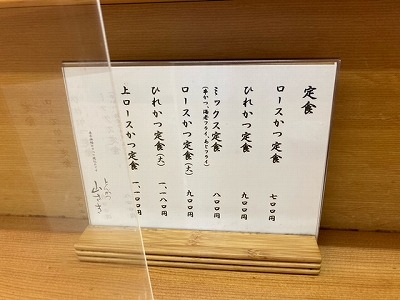 定食
ロースかつ定食 七〇〇円
ひれかつ定食 九〇〇円
ミックス定食 八〇〇円
(串かつ、海老フライ、あじフライ)
ロースかつ定食(大) 九〇〇円
ひれかつ定食(大) 一、一八〇円
上ロースかつ定食 一、一〇〇円
とんかつ